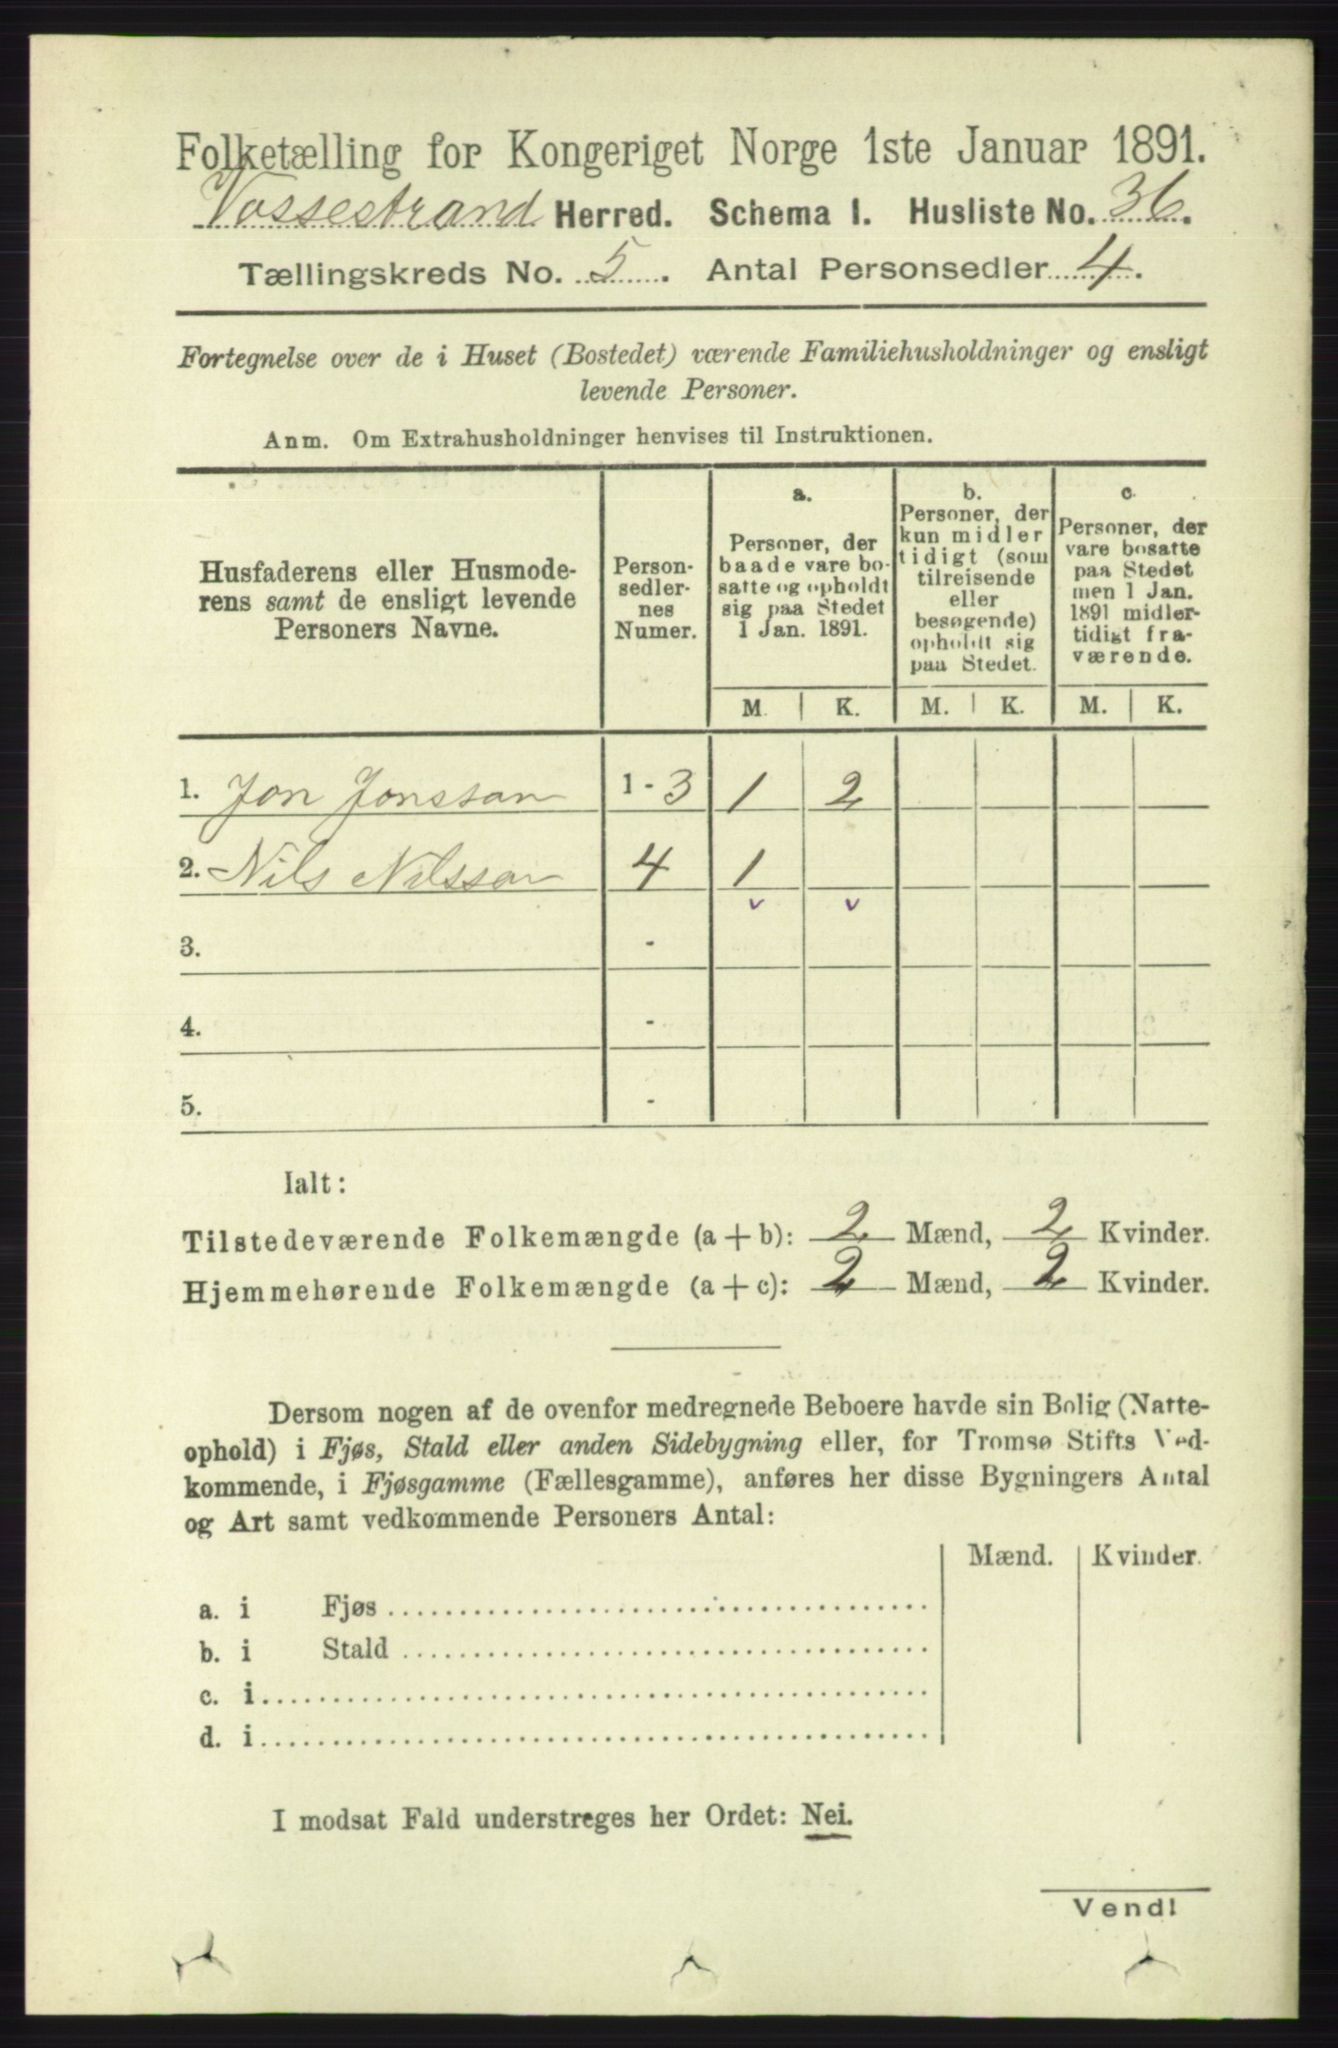 Folketælling for Kongeriget Norge 1ste Januar 1891.
Vossestrand Herred. Schema 1. Husliste No. 36.
Tællingskreds No. 5. Antal Personsedler 4.
Fortegnelse over de i Huset (Bostedet) værende Familiehusholdninger og ensligt
levende Personer.
Anm. Om Extrahusholdninger henvises til Instruktionen.
Husfaderens eller Husmode-
rens samt de ensligt levende
Personers Navne.
Person-
sedler-
nes
Numer.
a.
Personer, der
baade vare bo-
satte og opholdt
sig paa Stedet
1 Jan. 1891.
b.
Personer, der
kun midler
tidigt (som
tilreisende
eller
besøgende)
opholdt sig
paa Stedet.
c
Personer, der
vare bosatte
paa Stedet
men 1 Jan.
1891 midler-
tidigt fra-
værende.
M. K. M. K. M. K.
1. Jon Jonssan 1 - 3 1 2
2. Nils Nilssan 4 1
v v
3. -
4. -
5. -
Ialt:
Tilstedeværende Folkemængde (a + b): 2 Mænd, 2 Kvinder.
Hjemmehørende Folkemængde (a + c): 2 Mænd, 2 Kvinder.
Dersom nogen af de ovenfor medregnede Beboere havde sin Bolig (Natte-
ophold) i Fjøs, Stald eller anden Sidebygning eller, for Tromsø Stifts Ved-
kommende, i Fjøsgamme (Fællesgamme), anføres her disse Bygningers Antal
og Art samt vedkommende Personers Antal:
Mænd. Kvinder.
a. i Fjøs
b. i Stald
c. i
d. i
I modsat Fald understreges her Ordet: Nei.
Vend!